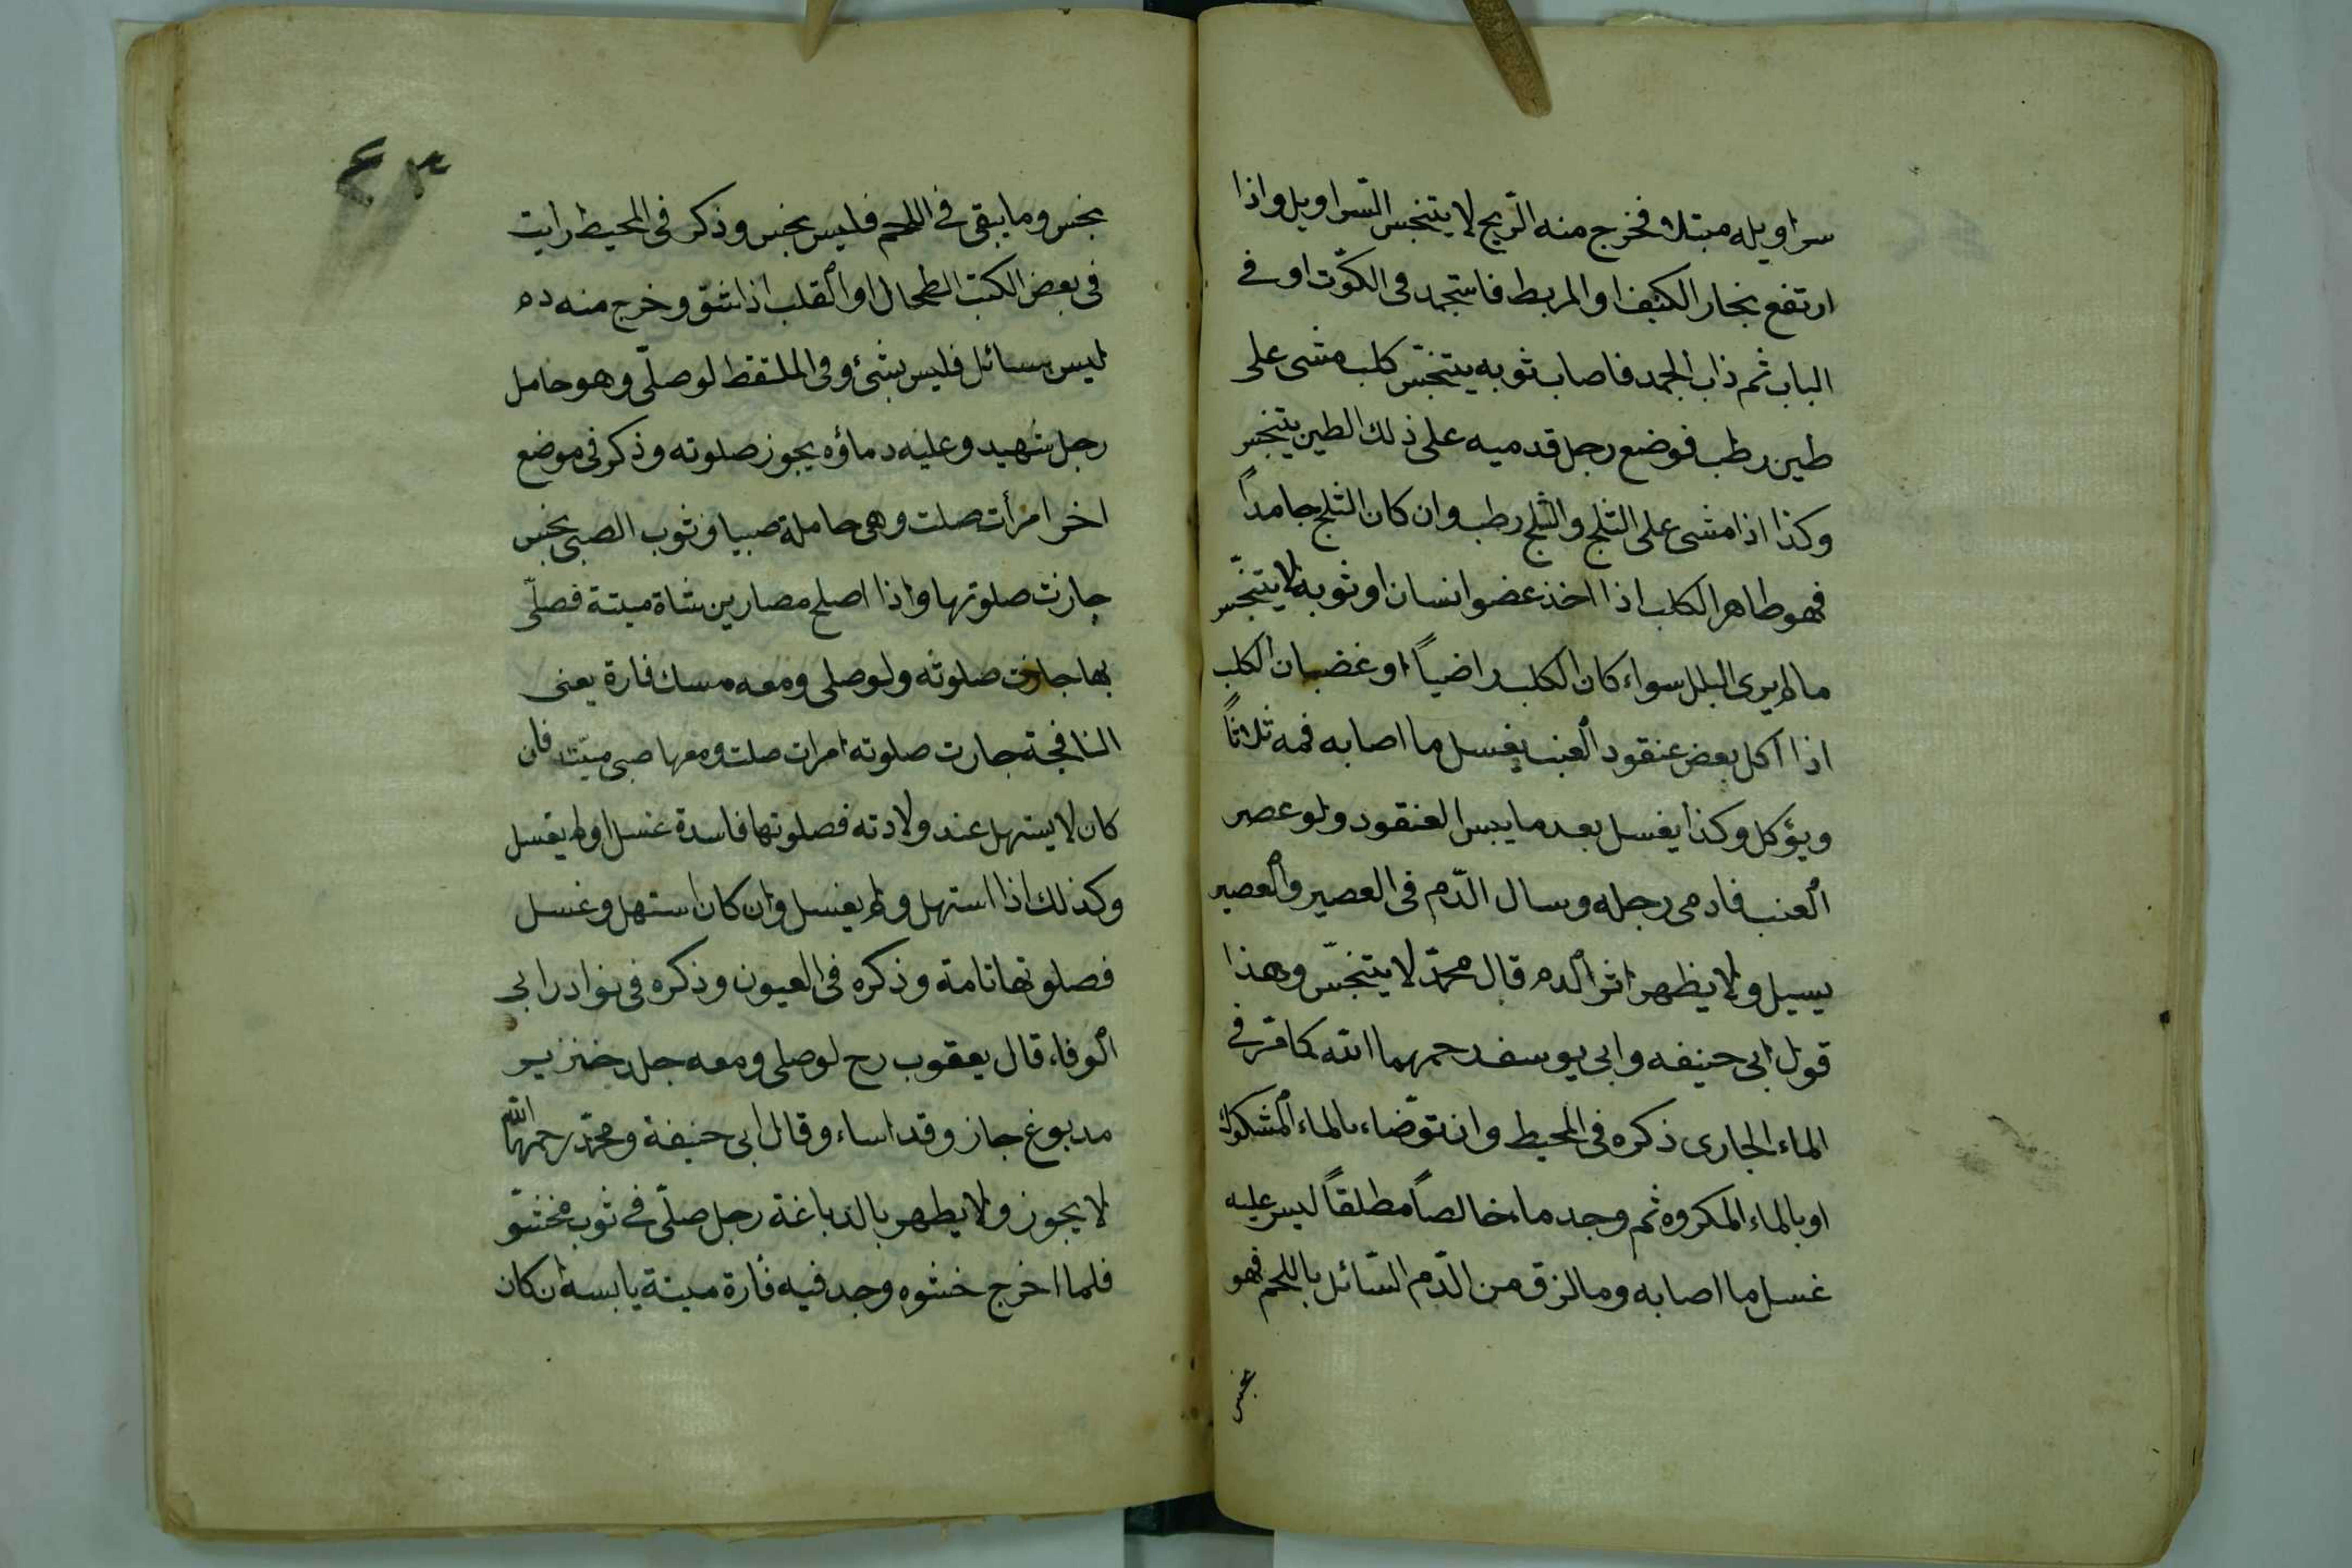 سراويله مبتلا فخرج منه الرّيح لا يتنجس السّراويل واذا
ارتفع بخار الكنيف او المربط فاستجمد فى الكوّت او فے
الباب ثم ذاب الجمد فاصاب ثوبه يتنجّس كلب مشى على
طين رطب فوضع رجل قدميه على ذلك الطين يتنجس
وكذا اذا مشى على الثلج والثلج رطب وان كان الثلج جامداً
فهو طاهر الكلب اذا اخذ عضو انسان او ثوبه لا يتنجّس
ما لم يرى البلل سواء كان الكلب راضياً او غضبان الكلب
اذا اكل بعض عنقود العنب يغسل ما اصابه فمه ثلاثاً
ويؤكل وكذا يغسل بعد ما يبس العنقود ولو عصر
العنب فادمى رجله وسال الدّم فى العصير والعصير
يسيل ولا يظهر اثر الدم قال محمّد لا يتنجّس وهذا
قول ابى حنيفه وابى يوسف رحمهما الله كما مرّ فے
الماء الجارى ذكره فى المحيط وان توّضاء بالماء المشكوك
او بالماء المكروه ثم وجد ماء خالصاً مطلقاً ليس عليه
غسل ما اصابه وما لزق من الدّم السّائل باللحم فهو
نجس
٤٣
نجس وما يبقى فى اللحم فليس بنجس وذكر فى المحيط رايت
فى بعض الكتب الطحال او القلب اذا شقّ وخرج منه دم
ليس بسائل فليس بشئ وفى الملتقط لو صلّى وهو حامل
رجل شهيد وعليه دماؤه يجوز صلوته وذكر فى موضع
اخر امرأت صلت وهى حاملة صبيا وثوب الصبى نجس
جازت صلوتها واذا اصلح مصارين شاة ميتة فصلّى
بها جازت صلوته ولو صلى ومعه مسك فارة يعنى
النافجة جازت صلوته امرات صلت ومعها صبى ميّت فان
كان لا يستهل عند ولادته فصلوتها فاسدة غسل او لم يغسل
وكذلك اذا استهل ولم يغسل وان كان استهل وغسل
فصلوتها تامة وذكره فى العيون وذكره فى نوادر ابى
الوفاء قال يعقوب رح لو صلى ومعه جلد خنزير
مدبوغ جاز وقد اساء وقال ابى حنيفة ومحمّد رحمهما الله
لا يجوز ولا يطهر بالدباغة رجل صلّى فے ثوب محشّو
فلما اخرج حشوه وجد فيه فارة ميتة يابسه ان كان